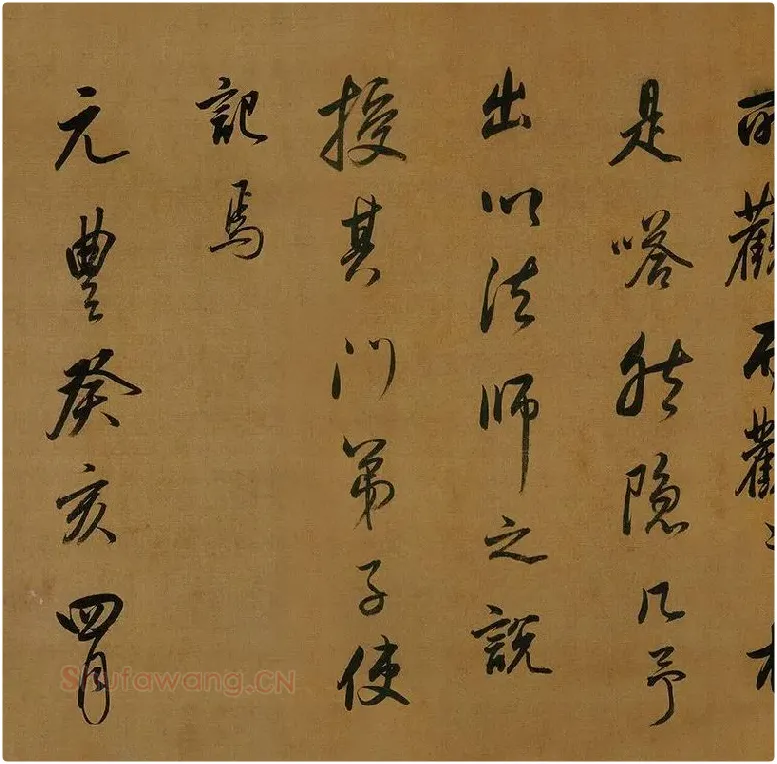 觀而觀
是嗒然隱几予
出以法師之說
授其門弟子使
記焉
元豐癸亥四月
Shufawang.CN